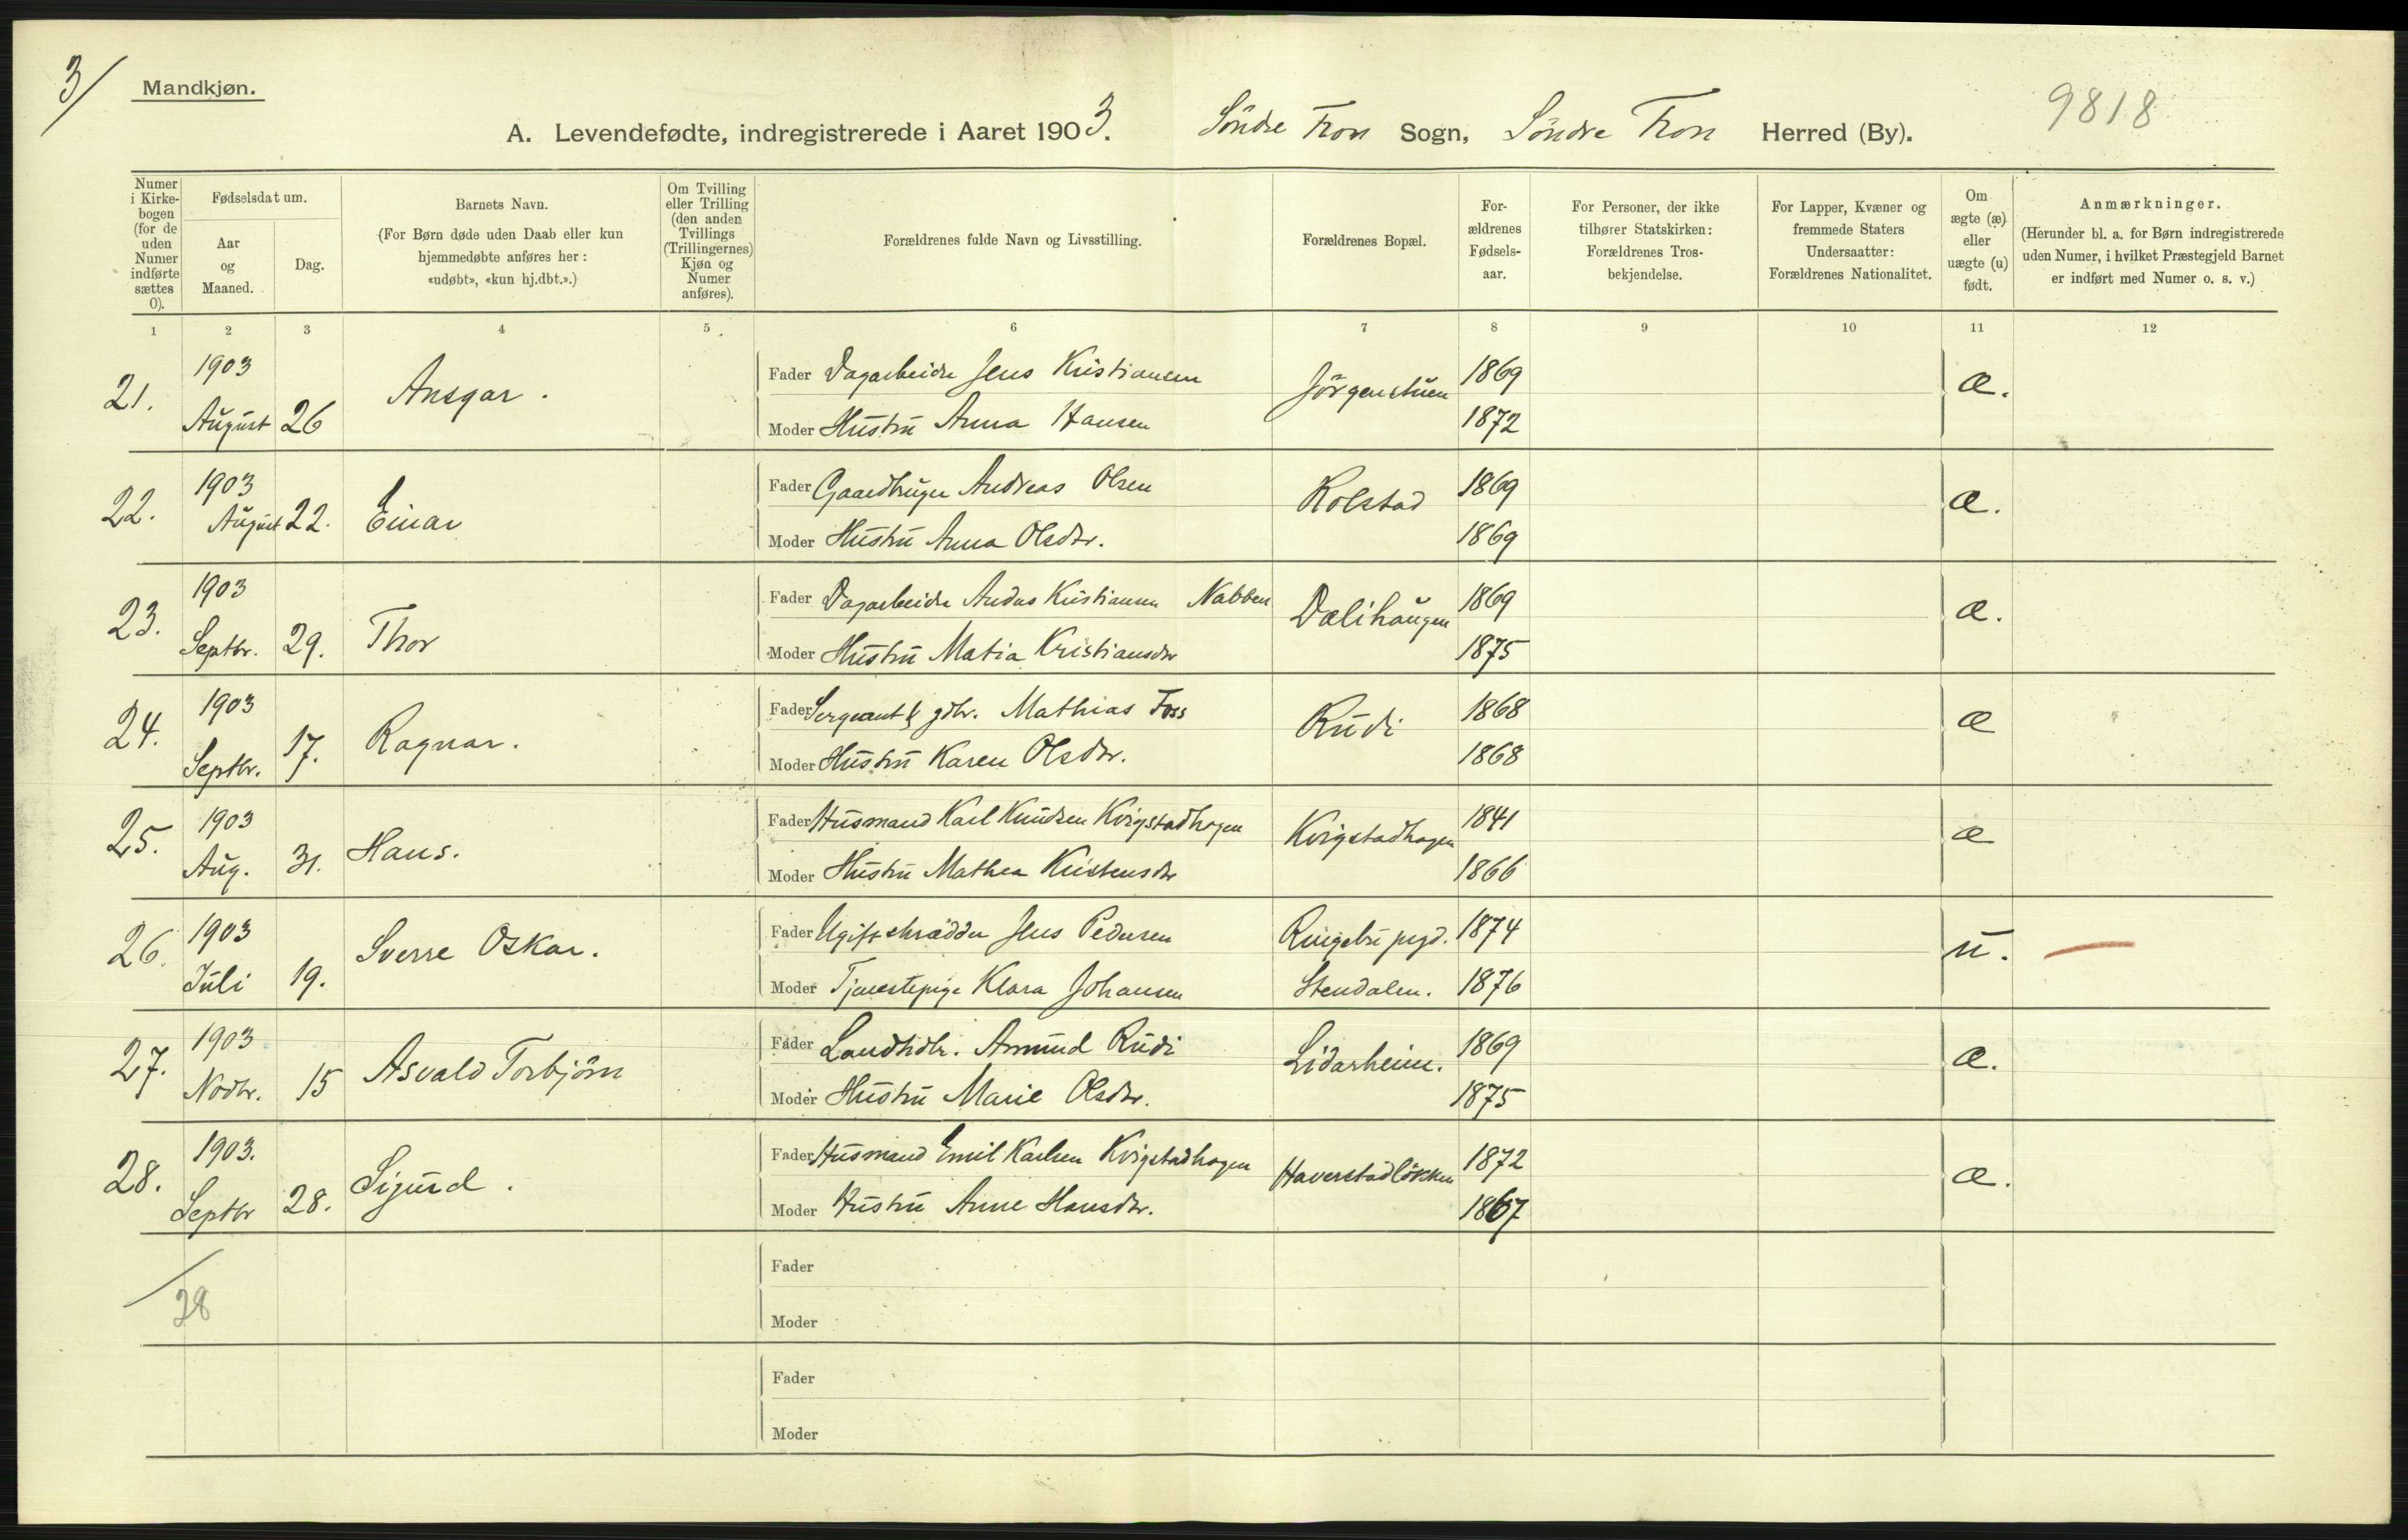 3/
Mandkjøn.
9818
A. Levendefødte, indregistrerede i Aaret 1903. Söndre Fron Sogn, Söndre Fron Herred (By).
Numer i Kirkebogen (for de uden Numer indførte sættes 0).
Fødselsdatum.
Aar og Maaned.
Dag.
Barnets Navn.
(For Børn døde uden Daab eller kun hjemmedøbte anføres her: «udøbt», «kun hj.dbt.».)
Om Tvilling eller Trilling (den anden Tvillings (Trillingernes) Kjøn og Numer anføres).
Forældrenes fulde Navn og Livsstilling.
Forældrenes Bopæl.
Forældrenes Fødselsaar.
For Personer, der ikke tilhører Statskirken: Forældrenes Trosbekjendelse.
For Lapper, Kvæner og fremmede Staters Undersaatter: Forældrenes Nationalitet.
Om ægte (æ) eller uægte (u) født.
Anmærkninger.
(Herunder bl. a. for Børn indregistrerede uden Numer, i hvilket Præstegjeld Barnet er indført med Numer o. s. v.)
1 2 3 4 5 6 7 8 9 10 11 12
21. 1903 August 26 Ansgar. Fader Dagarbeider Jens Kristiansen Jörgenstuen 1869 æ.
Moder Hustru Anna Hansen 1872
22. 1903 August 22. Einar Fader Gaardbruger Andreas Olsen Kolstad 1869 æ.
Moder Hustru Anna Olsdtr. 1869
23. 1903 Septbr. 29. Thor Fader Dagarbeider Andas Kristiansen Nabben Dalihaugen 1869 æ.
Moder Hustru Matia Kristiansdtr 1875
24. 1903 Septbr. 17. Ragnar. Fader Sergeant & gdbr. Mathias Foss Rudi 1868 æ
Moder Hustru Karen Olsdtr. 1868
25. 1903 Aug. 31. Hans. Fader Husmand Karl Knudsen Kvigstadhagen Kvigstadhagen 1841 æ
Moder Hustru Mathea Kristensdtr 1866
26. 1903 Juli 19. Sverre Oskar. Fader Ugift skrädder Jens Pedersen Ringebu pgd. 1874 u.
Moder Tjenestepige Klara Johansen Stendalen. 1876
27. 1903 Novbr. 15 Asvald Torbjörn Fader Landhdlr. Amund Rudi Lidarheim. 1869 æ.
Moder Hustru Marie Olsdtr. 1875
28. 1903. Septbr 28. Sigurd. Fader Husmand Emil Karlsen Kvigstadhagen Haverstadløkken 1872 æ.
Moder Hustru Anne Hansdtr. 1867
28
Fader
Moder
Fader
Moder